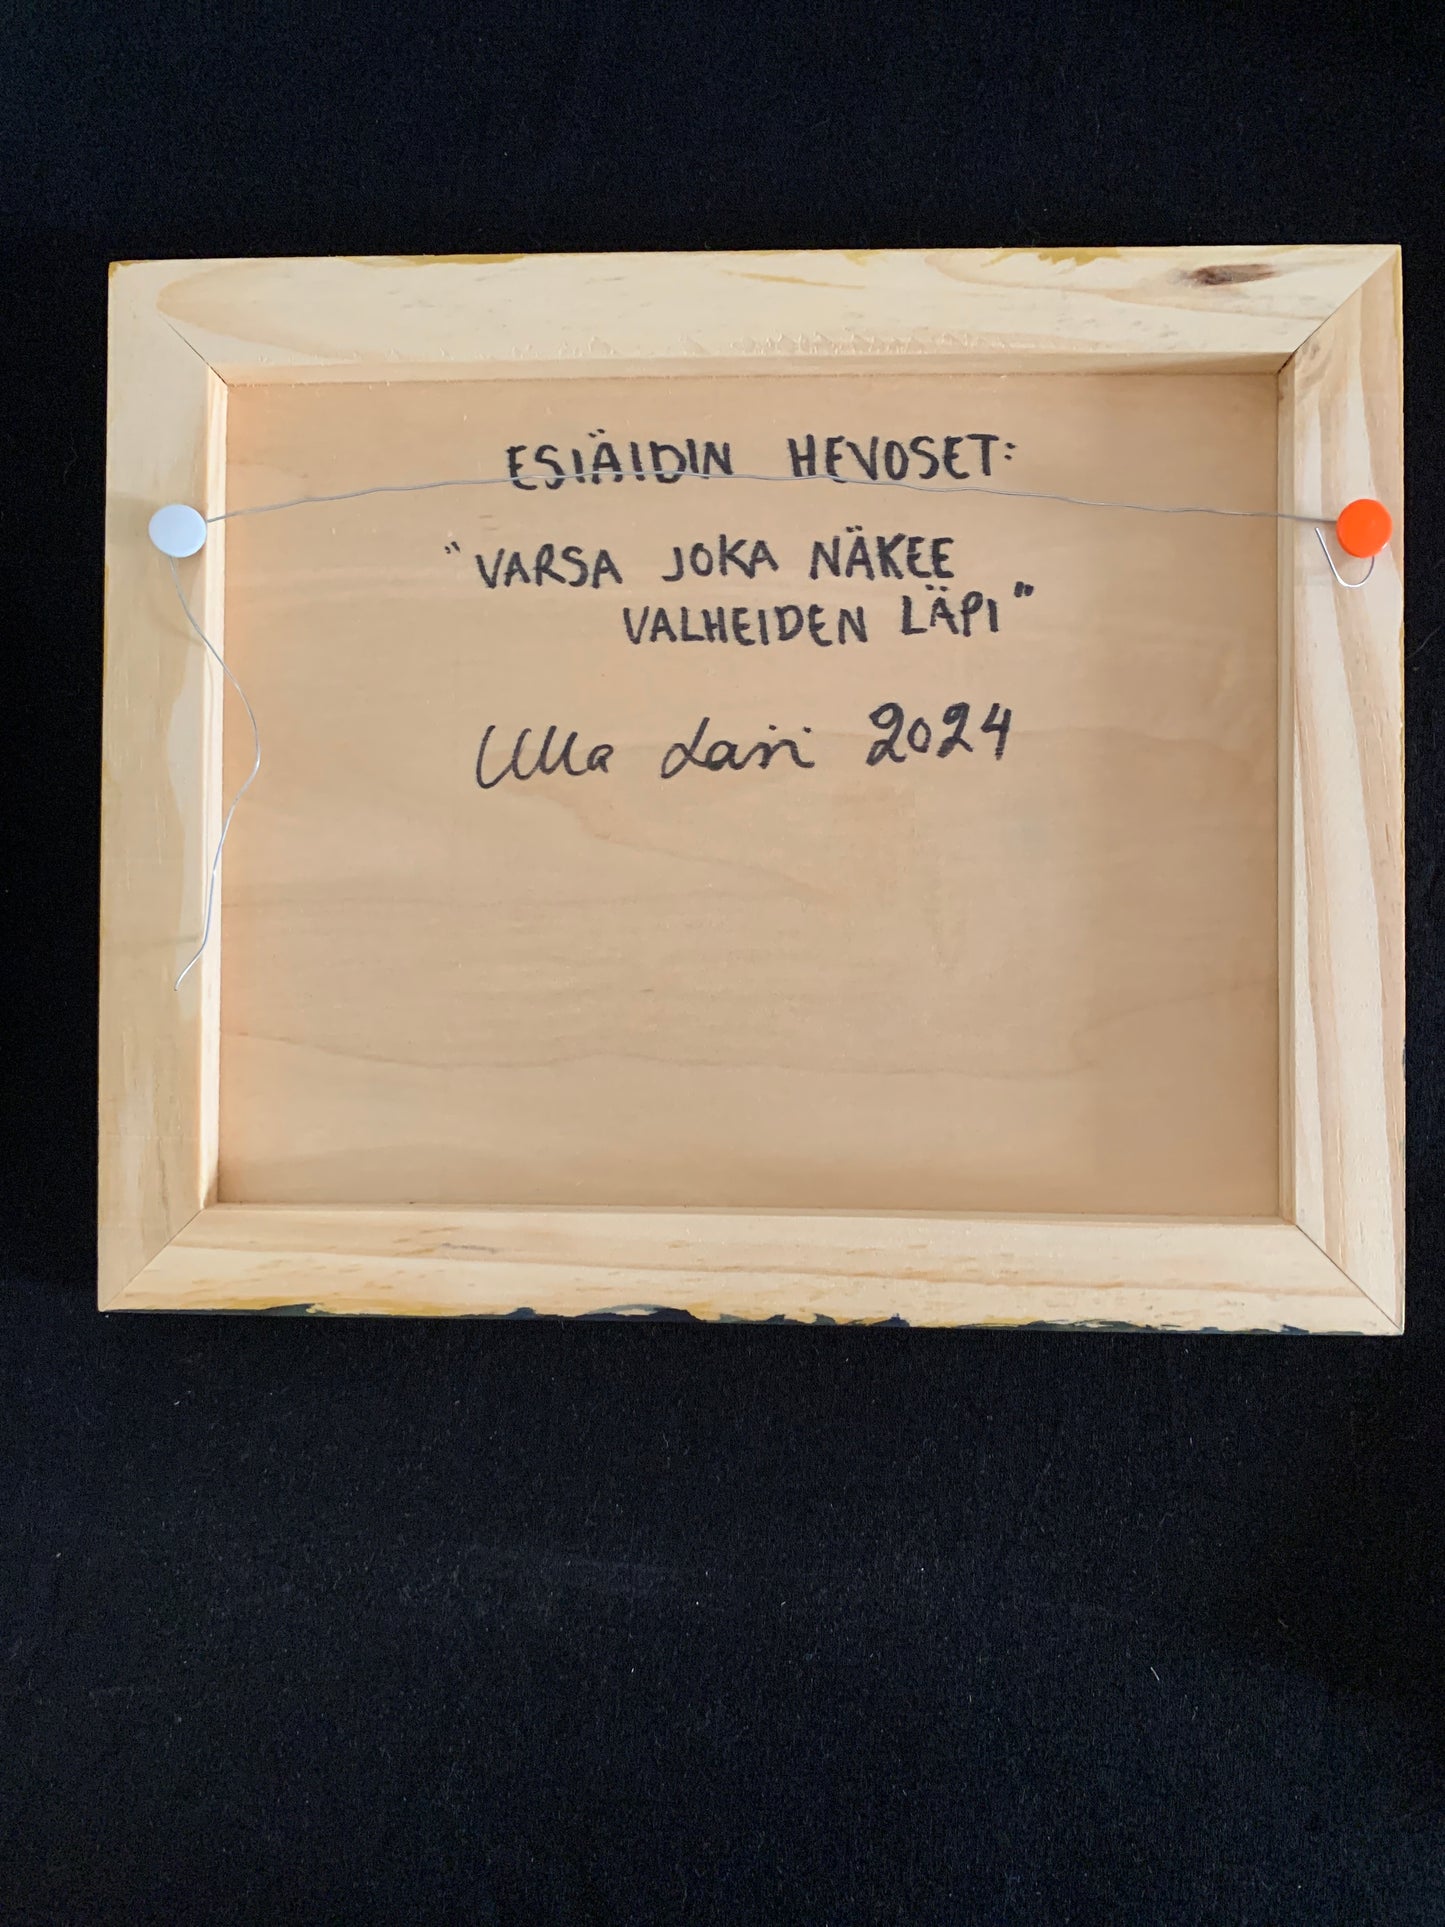 ESIÄIDIN HEVOSET:
"VARSA JOKA NÄKEE
VALHEIDEN LÄPI"
Ulla Lasi 2024